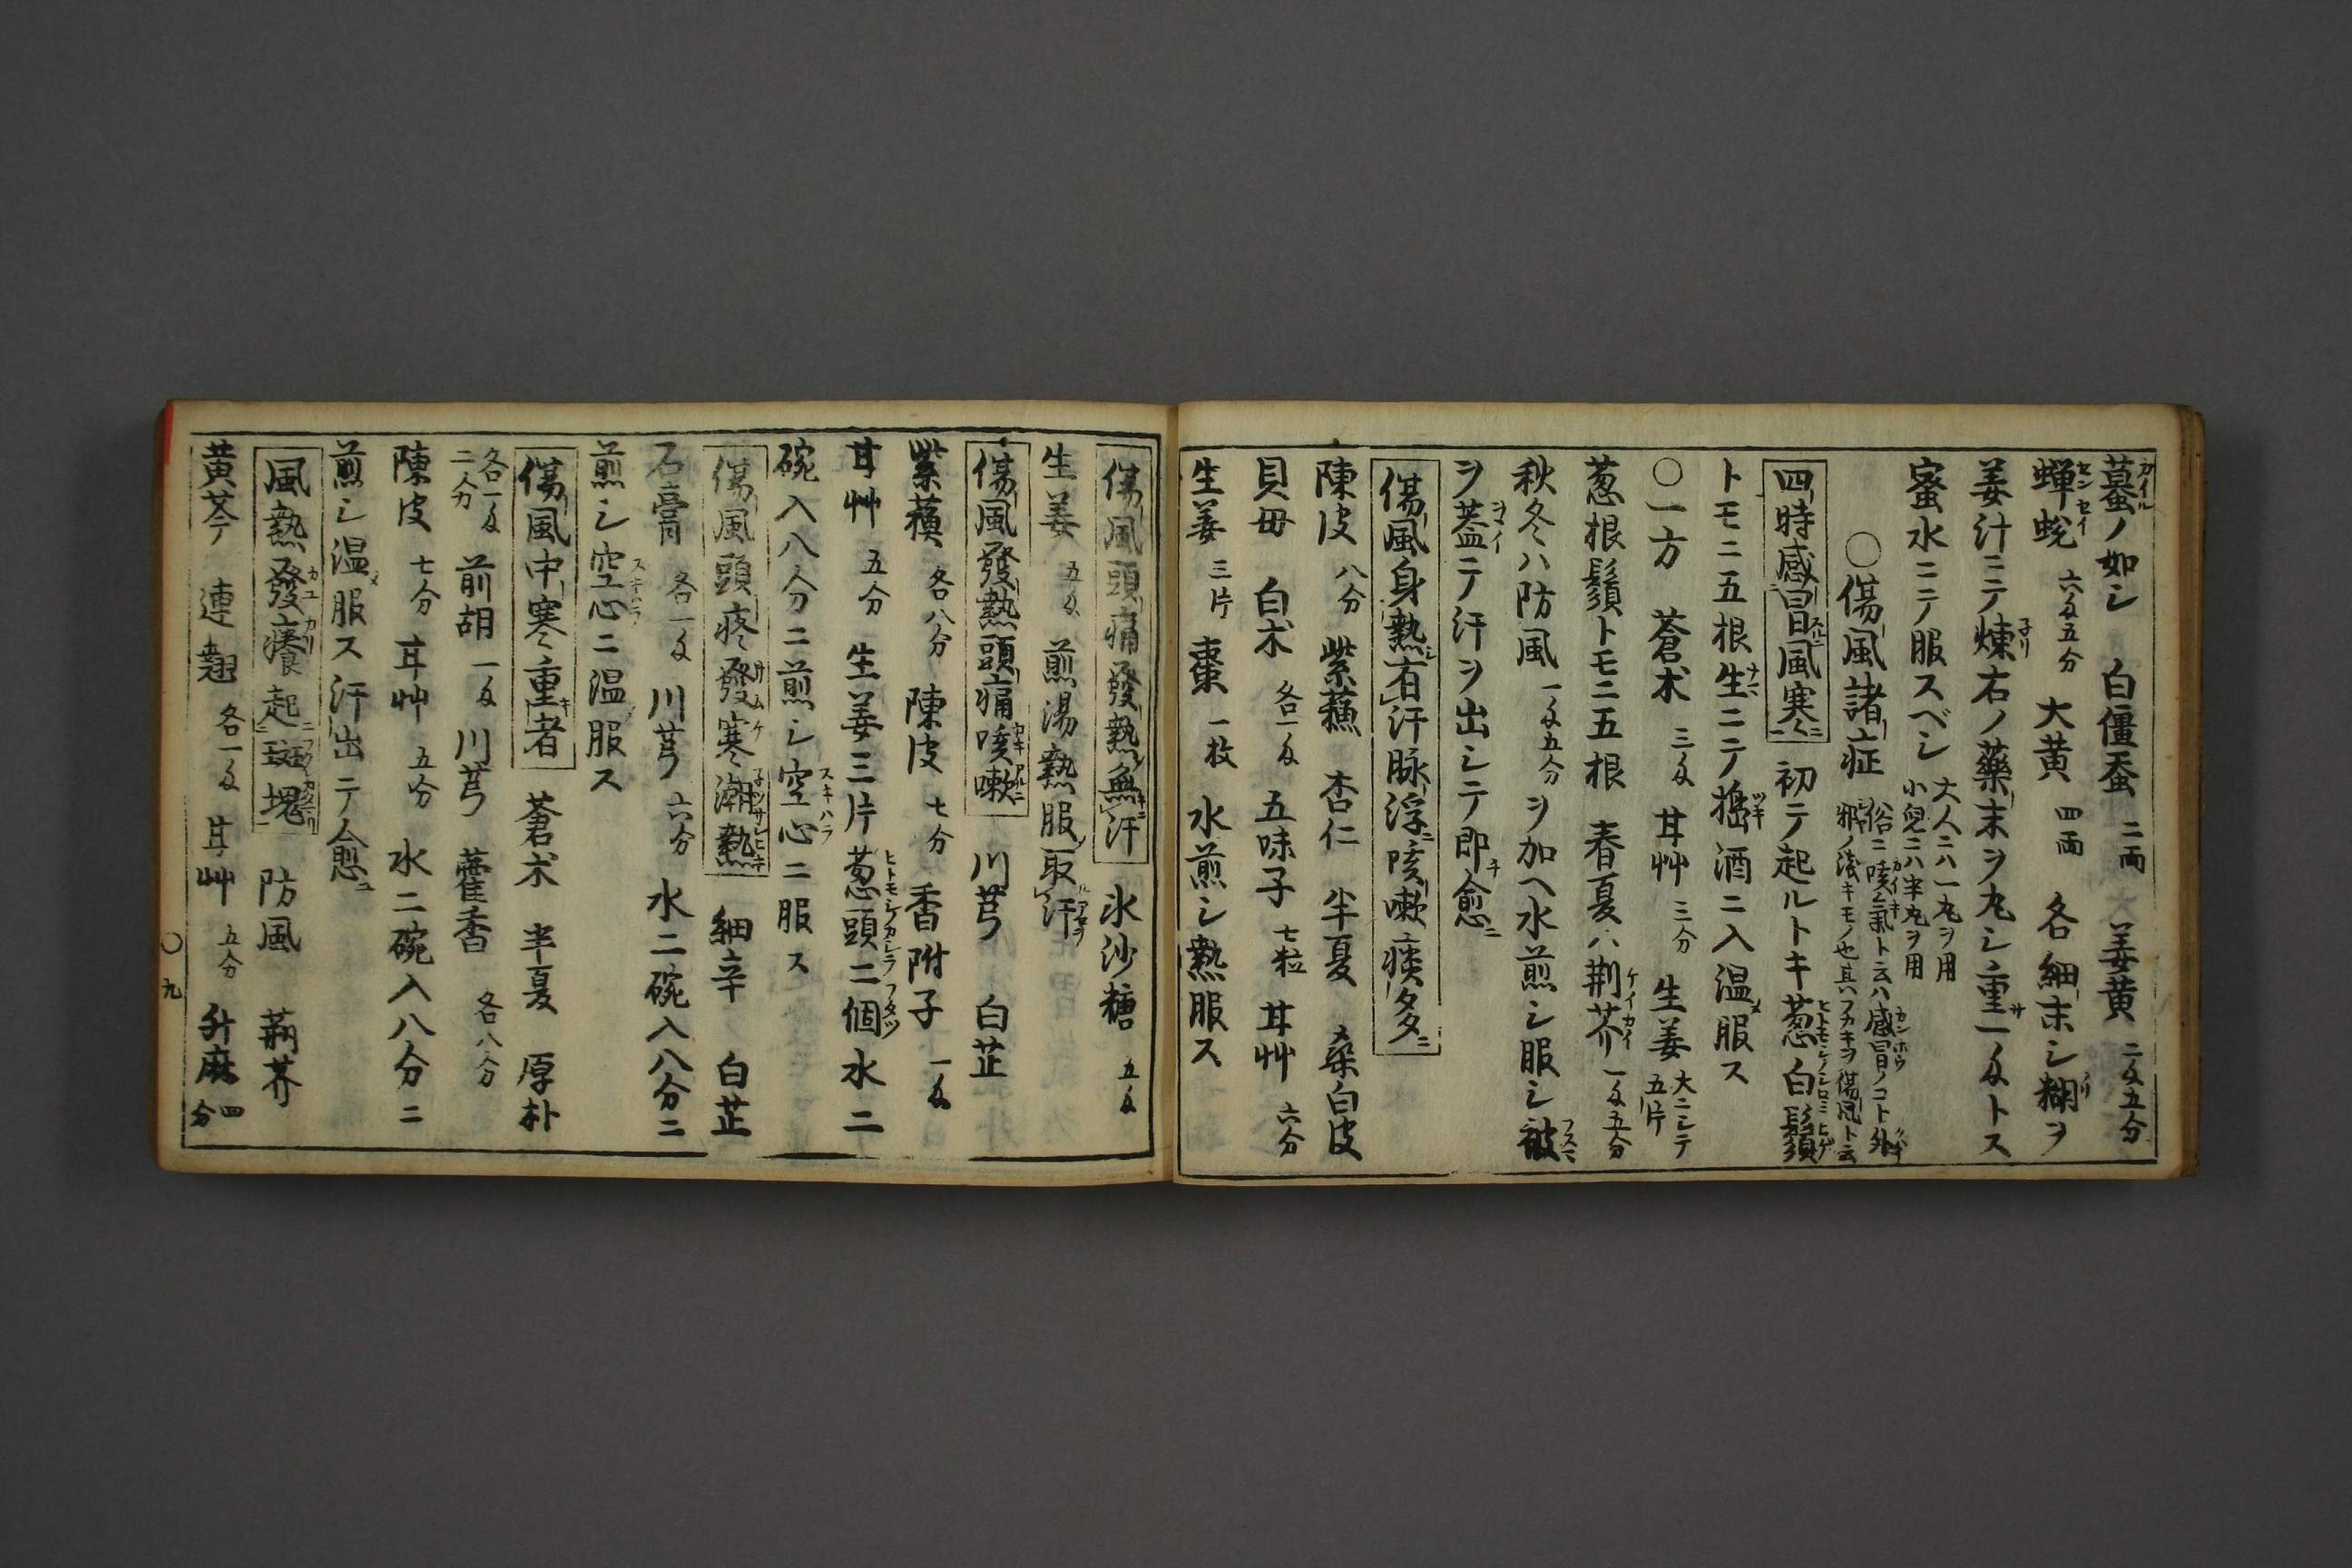 蟇ノ如シ 白僵蚕 二両 姜黄 二匁五分
蟬蛻 六匁五分 大黄 四両 各細末シ糊ヲ
姜汁ニテ煉右ノ藥末ヲ丸シ重一匁トス
蜜水ニテ服スベシ 大人ニハ一丸ヲ用 小兒ニハ半丸ヲ用
○傷風諸症 俗ニ咳氣ト云ハ感冒ノコト外 邪ノ浅キモノ也其フカキヲ傷風ト云
四時感冒風寒 初テ起ルトキ葱白鬚
トモニ五根生ニテ搗酒ニ入温服ス
○一方 蒼朮 三匁 甘艸 三分 生姜 大ニシテ五片
葱根鬚トモニ五根 春夏ハ荊芥 一匁五分
秋冬ハ防風 一匁五分 ヲ加ヘ水煎シ服シ被
ヲ蓋テ汗ヲ出シテ即愈
傷風身熱有汗脉浮咳嗽痰多
陳皮 八分 紫蘓 杏仁 半夏 桑白皮
貝母 白朮 各一匁 五味子 七粒 甘艸 六分
生姜 三片 棗 一枚 水煎シ熱服ス
傷風頭痛發熱無汗 氷沙糖 五匁
生姜 五匁 煎湯熱服取汗
傷風發熱頭痛咳嗽 川芎 白芷
紫蘓 各八分 陳皮 七分 香附子 一匁
甘艸 五分 生姜三片葱頭二個水二
碗入八分ニ煎シ空心ニ服ス
傷風頭疼發寒潮熱 細辛 白芷
石膏 各一匁 川芎 六分 水二碗入八分ニ
煎シ空心ニ温服ス
傷風中寒重者 蒼朮 半夏 厚朴
各一匁二分 前胡 一匁 川芎 藿香 各八分
陳皮 七分 甘艸 五分 水二碗入八分ニ
煎シ温服ス汗出テ愈
風熱發癢起斑塊 防風 荊芥
黄芩 連翹 各一匁 甘艸 五分 升麻 四分
○九